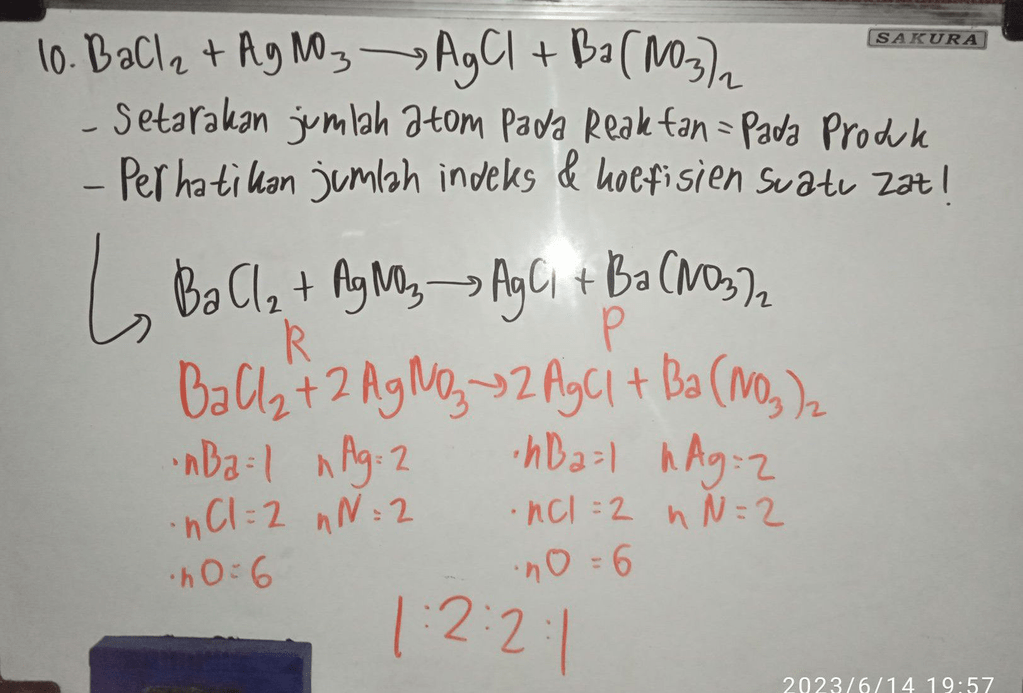 SAKURA
10. BaCl₂ + AgNO₃ → AgCl + Ba(NO₃)₂
- Setarakan jumlah atom pada Reaktan = Pada Produk
- Perhatikan jumlah indeks & koefisien suatu zat!
BaCl₂ + AgNO₃ → AgCl + Ba(NO₃)₂
R P
BaCl₂ + 2 AgNO₃ → 2 AgCl + Ba(NO₃)₂
·nBa=1 nAg=2 ·nBa=1 nAg=2
·nCl=2 nN=2 ·nCl=2 nN=2
·nO=6 ·nO=6
1:2:2:1
2023/6/14 19:57